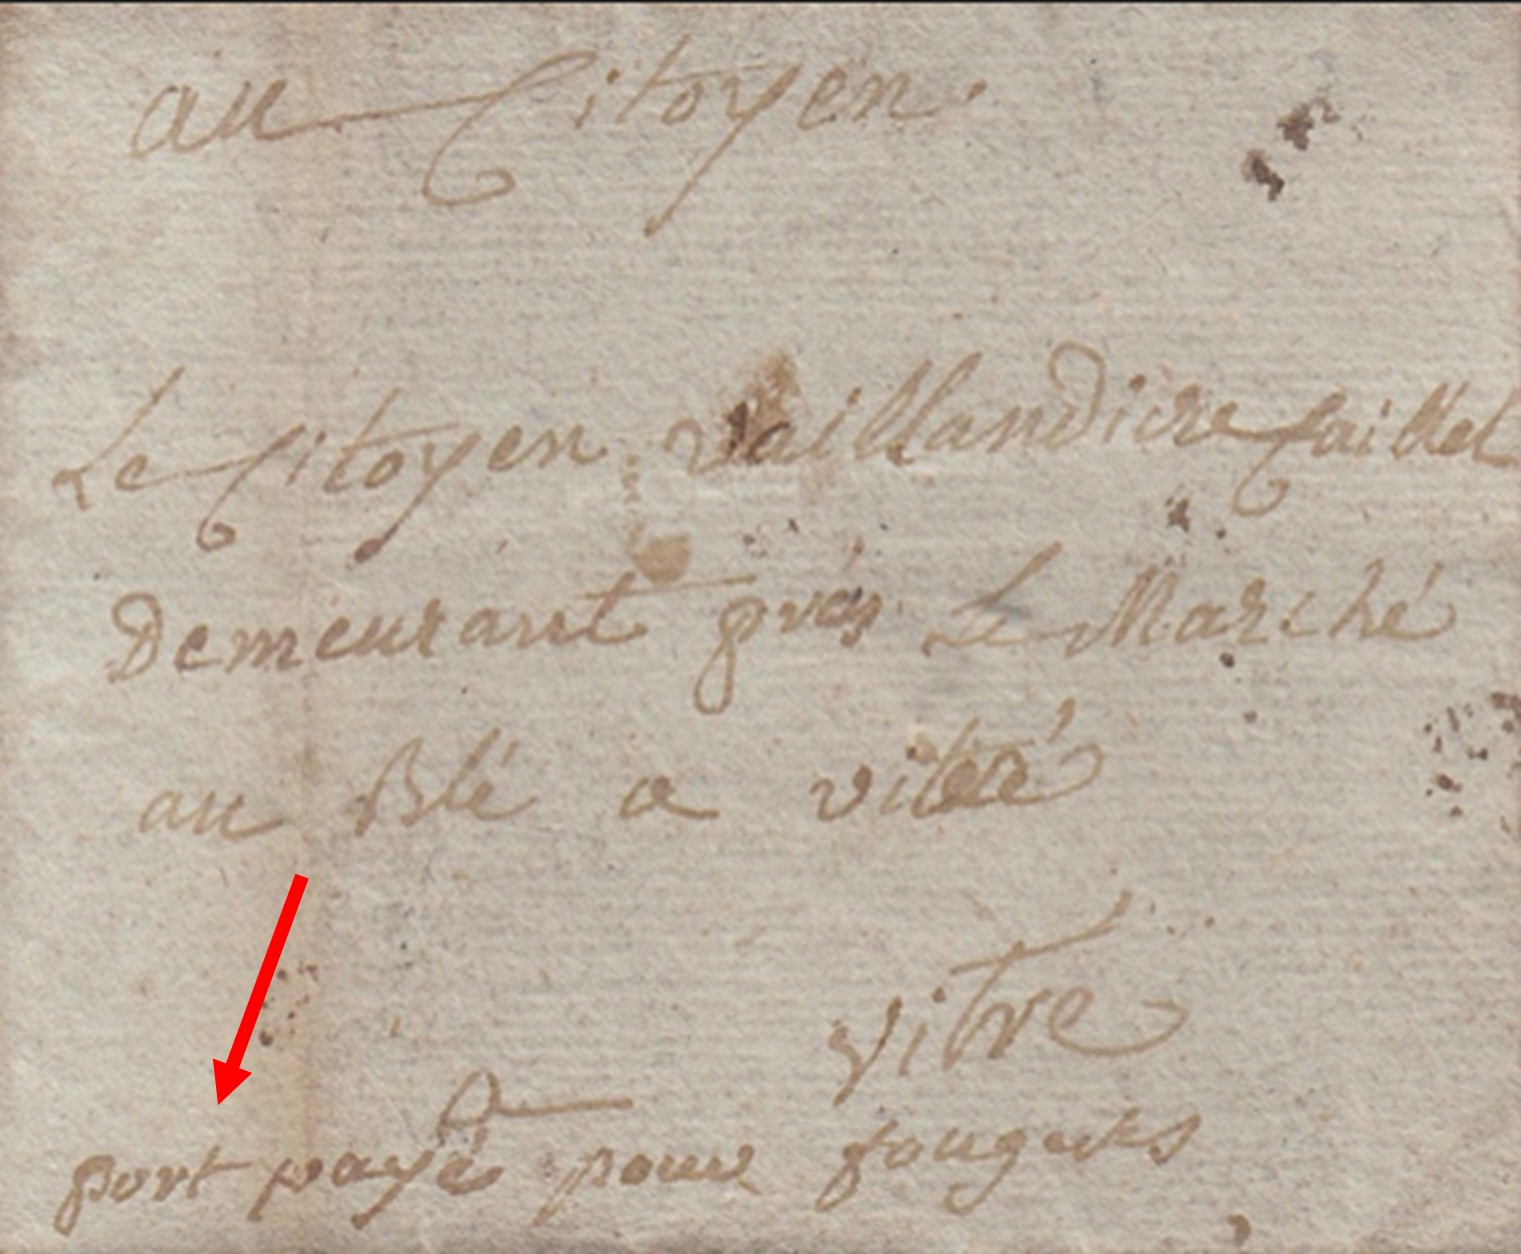 au Citoyen.
Le Citoyen Vaillandiere Caillel
Demeurant près Le Marché
au Blé a vitré
vitre
port payé pour fougeres